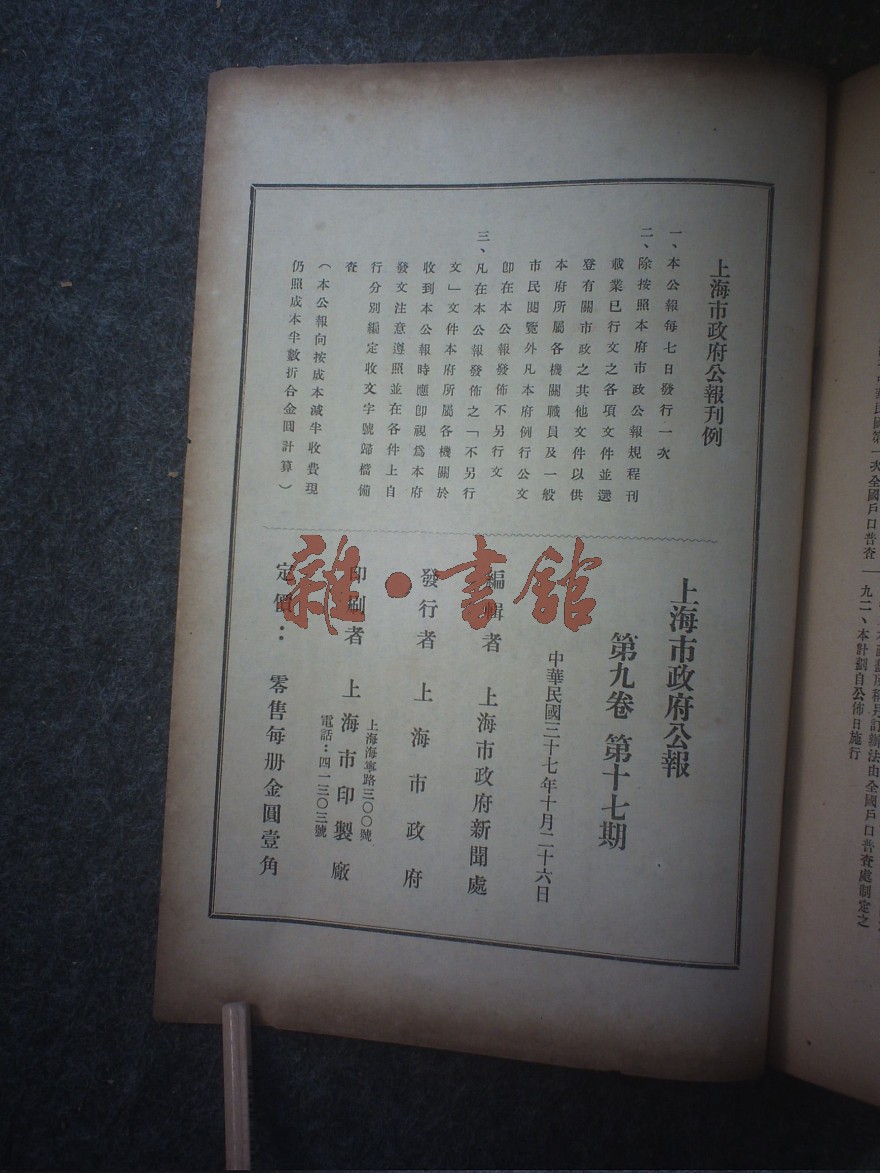 上海市政府公報刊例
一、本公報每七日發行一次
二、除按照本府市政公報規程刊
載業已行文之各項文件並選
登有關市政之其他文件以供
本府所屬各機關職員及一般
市民閱覽外凡本府例行公文
卽在本公報發佈不另行文
三、凡在本公報發佈之「不另行
文」文件本府所屬各機關於
收到本公報時應卽視爲本府
發文注意遵照並在各件上自
行分別編定收文字號歸檔備
查
（本公報向按成本減半收費現
仍照成本半數折合金圓計算）
上海市政府公報
第九卷 第十七期
中華民國三十七年十月二十六日
編輯者 上海市政府新聞處
發行者 上海市政府
印刷者 上海市印製廠
上海海寧路三〇〇號
電話：四一三〇三號
定價： 零售每册金圓壹角
雜·書館
國第一次全國戶口普查
辦法由全國戶口普查處制定之
九二、本計劃自公佈日施行